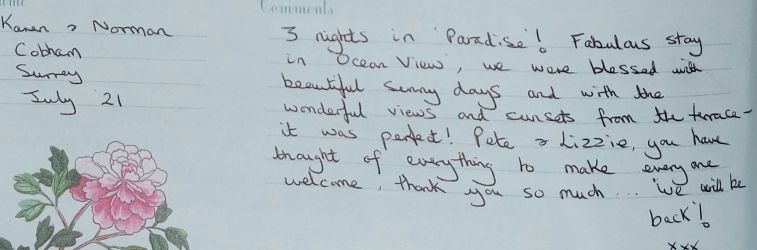 Comments
Karen & Norman
Cobham
Surrey
July '21
3 nights in 'Paradise'! Fabulous stay
in 'Ocean View', we were blessed with
beautiful sunny days and with the
wonderful views and sunsets from the terrace -
it was perfect! Pete & Lizzie, you have
thought of everything to make everyone
welcome, thank you so much... 'we will be
back'!
xxx